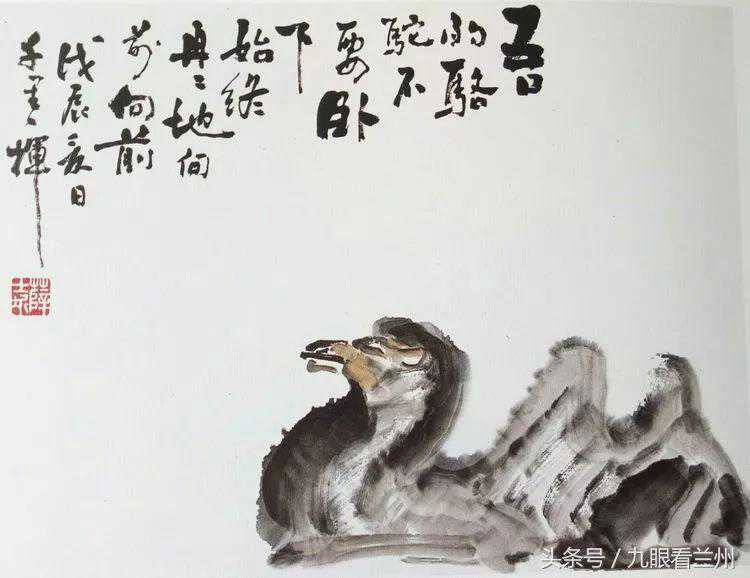 吾
的駱
駝不
要卧
下
始終
地向
前向前
戊辰夏日
揮
头条号 / 九眼看兰州